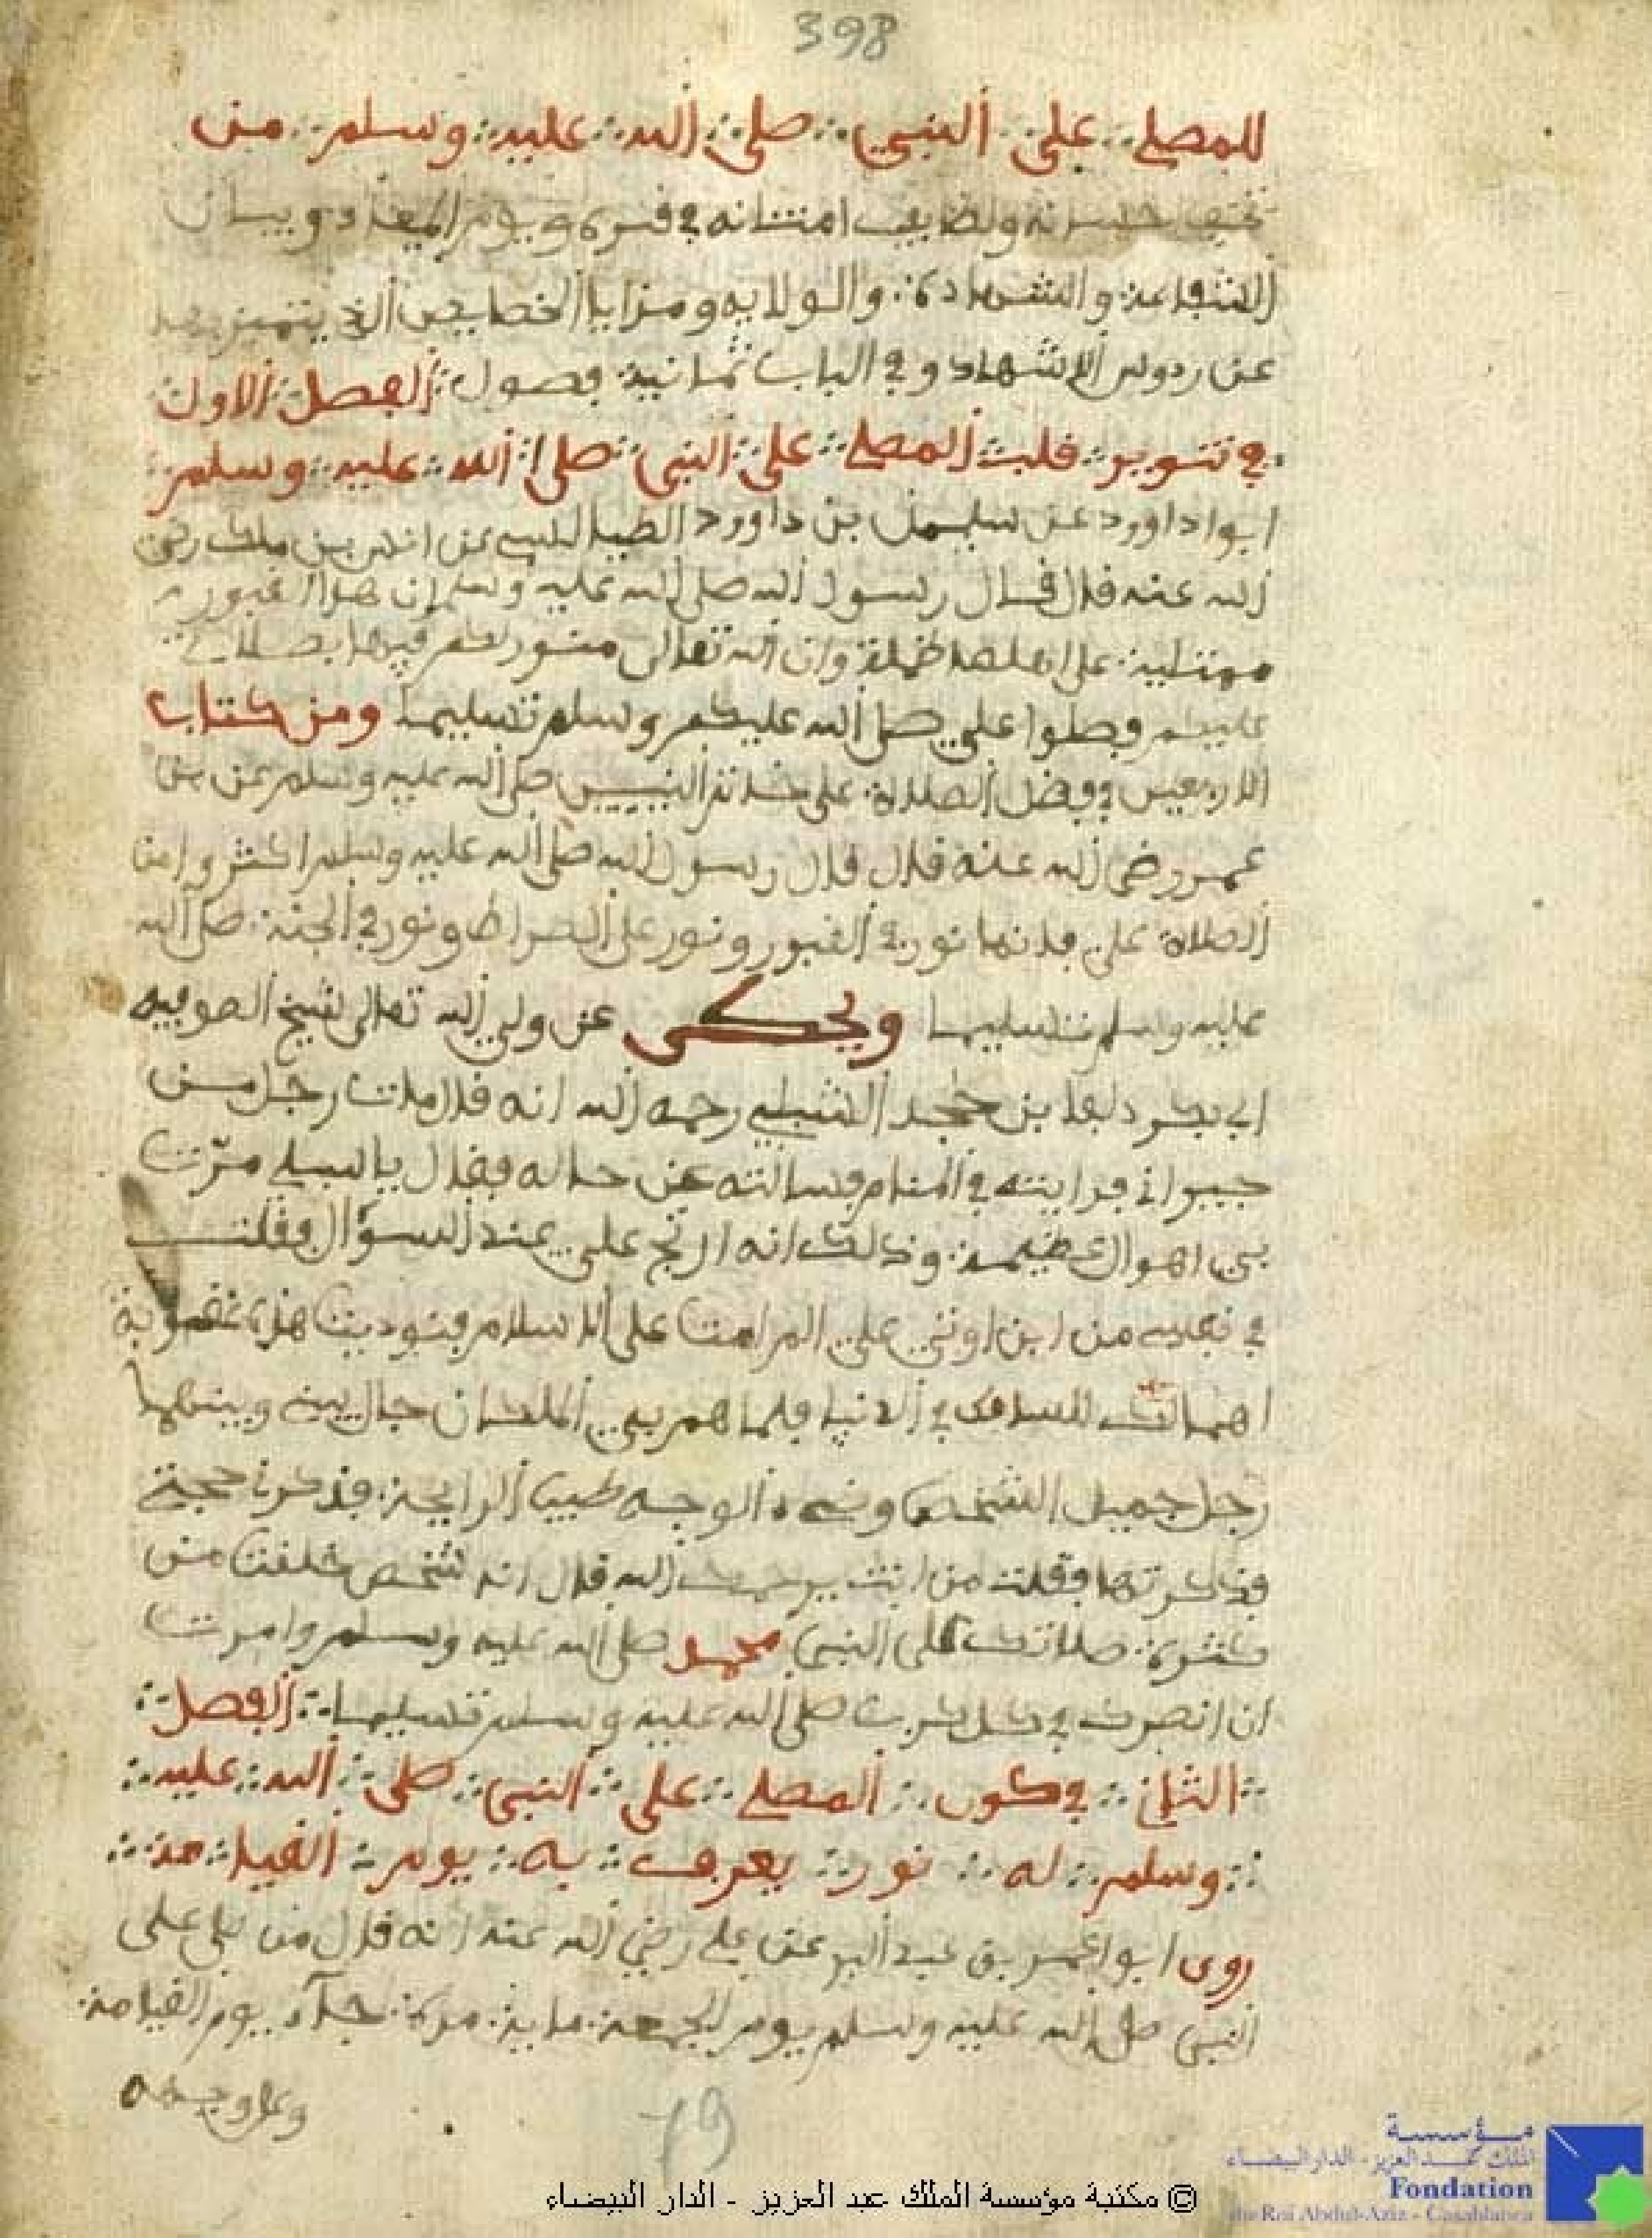 398
للمصلي على النبي صلى الله عليه وسلم من
ولطايف امتنانه في قبره ويوم الميعاد وبيان
الشفاعة والشهادة والولايه ومزايا الخصايص الذي يتميز بها
عن رءوس الاشهاد وفي الباب ثمانية فصول الفصل الاول
في تنوير قلب المصلي على النبي صلى الله عليه وسلم
ابوا داوود عن سليمن بن داوود الطيالسي عن انس بن ملك رضي
الله عنه قال قال رسول الله صلى الله عليه وسلم ان هذا القبور
ممتلية على اهلها ظلمة وان الله تعالى منور لهم فيها بصلاتي
عليهم فصلوا علي صلى الله عليكم وسلم تسليما ومن كتاب
الاربعين في فضل الصلاة على خاتم النبيين صلى الله عليه وسلم عن بن
عمر رضي الله عنه قال قال رسول الله صلى الله عليه وسلم اكثروا من
الصلاة علي فانها نور في القبور ونور على الصراط ونور في الجنة صلى الله
عليه وسلم تسليما ويحكى عن ولي الله تعالى شيخ الصوفيه
ابي بكر دلفا بن حجد الشبلي رحمه الله انه قال مات رجل من
جيراني فرايته في المنام فسالته عن حاله فقال يا شبلي مرّت
بي اهوال عظيمة وذلك انه ارتج علي عند السوال فقلت
في نفسي من اين اوتي علي الم امت على الاسلام فنوديت هذه عقوبة
اهمالك للسانك في الدنيا فلما هم بي الملكان حال بيني وبينهما
رجل جميل الشخص وضيء الوجه طيب الرايحة فذكرني حجتي
فذكرتها فقلت من انت يرحمك الله قال انا شخص خلقت من
كثرة صلاتك على النبي محمد صلى الله عليه وسلم وامرت
ان انصرك في كل كرب صلى الله عليه وسلم تسليما الفصل
الثاني في كون المصلي على النبي صلى الله عليه
وسلم له نور يعرف به يوم القيامة
روى ابوا عمر بن عبد البر عن علي رضي الله عنه انه قال من صلى على
النبي صلى الله عليه وسلم يوم الجمعة ماية مرة جاء يوم القيامة
وعلى وجهه
79
© مكتبة مؤسسة الملك عبد العزيز - الدار البيضاء
مؤسسة
الملك عبد العزيز - الدار البيضاء
Fondation
du Roi Abdul-Aziz - Casablanca